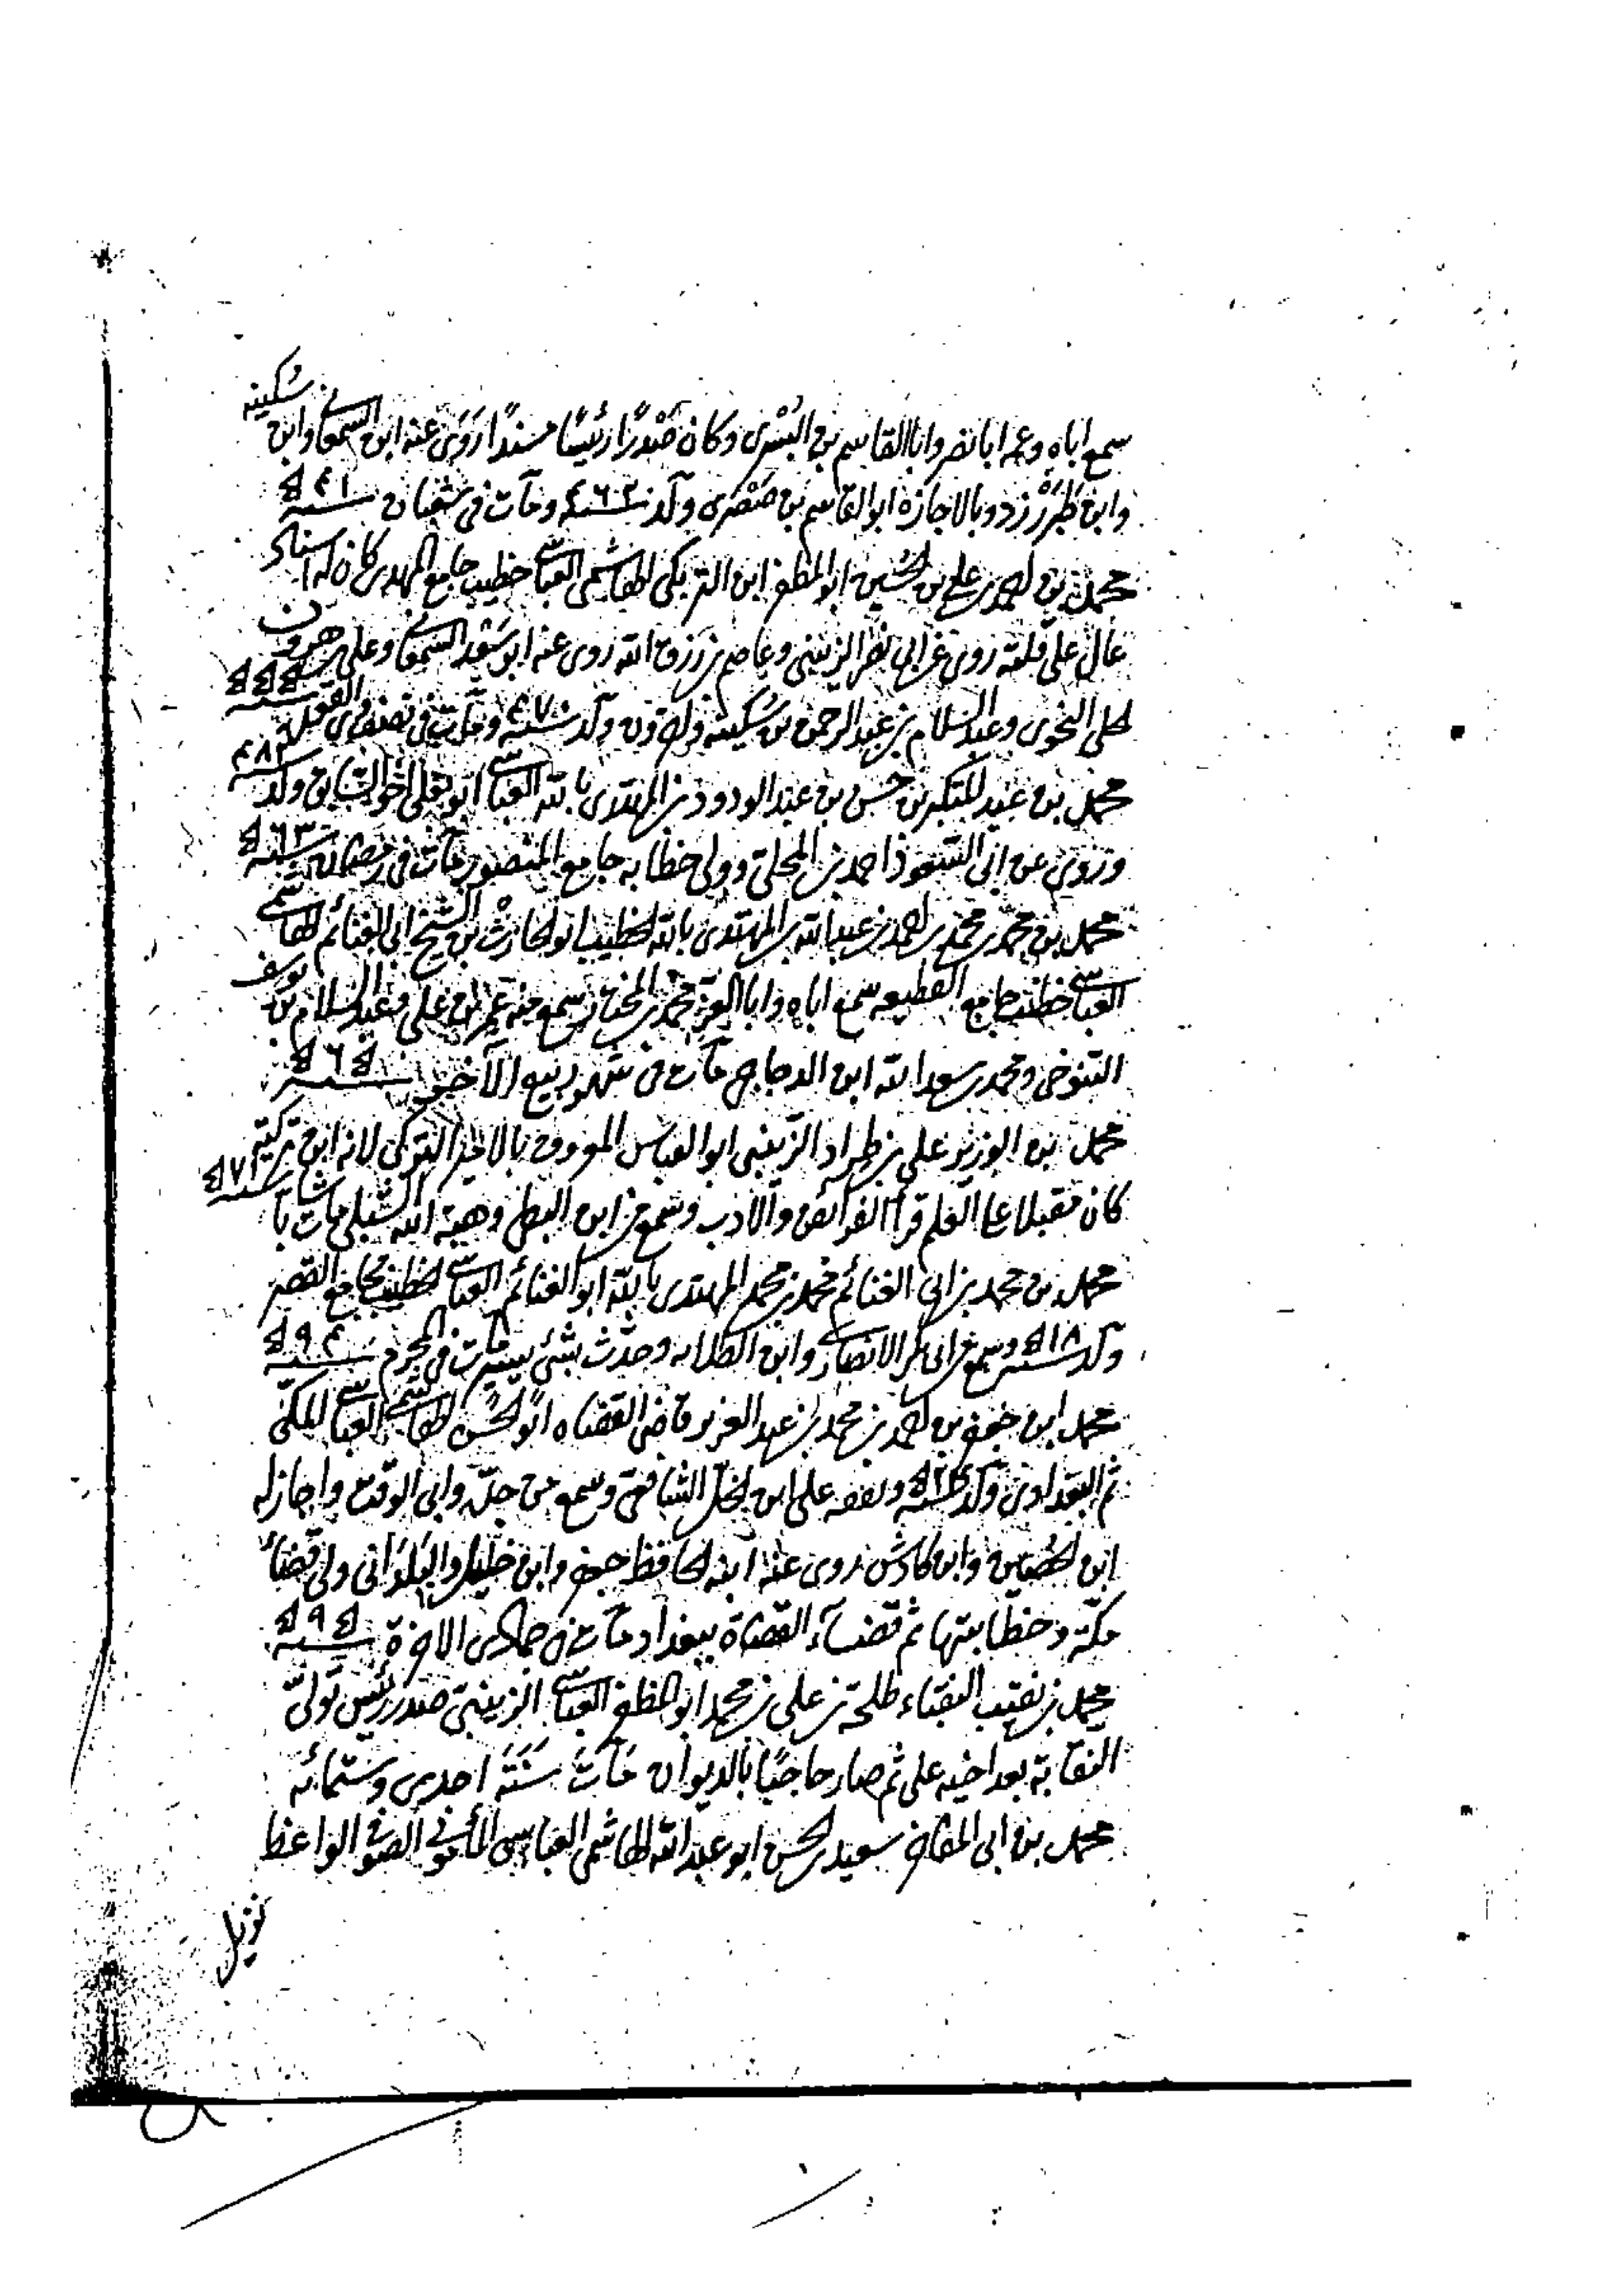 سمع اباه وعمه ابا نصر وابا القاسم بن البسرى وكان صَدْرًا رئيسًا مسندًا رَوَى عنه ابن السمعانى وابن سُكينه
وابن طَبَرْزد وبالاجازه ابو القاسم بن صَصْرَى ولد سنة ٤٦٢ ومات فى شعبان سنة ٥٤١
محمد بن احمد بن على بن الحسين ابو المظفر ابن التريكى الهاشمى العباسى خطيب جامع المهدى كان له اسناد
عال على قلته روى عن ابى نصر الزينبى وعاصم بن رزق الله روى عنه ابو سَعْد السمعانى وعلى بن هرون
الحلى النحوى وعبد السلام بن عبد الرحمن بن سُكينه واخرون ولد سنة ٤٧٠ ومات فى نصف ذى القعده سنة ٥٥٥
محمد بن عبد المتكبر بن حسن بن عبد الودود بن المهتدى بالله العباسى ابو يعلى اخو السابق ولد سنة ٤٨٢
وروى عن ابى السعود احمد بن المجلى وولى خطابه جامع المنصور مات فى رمضان سنة ٥٦٣
محمد بن محمد بن محمد بن احمد بن عبد الله بن المهتدى بالله الخطيب ابو الحارث بن الشيخ ابى الغنائم الهاشمى
العباسى خطيب جامع القطيعه سمع اباه وابا العز محمد بن المختار سمع منه عمر بن على وعبد السلام بن يوسف
التنوخى ومحمد بن سعد الله ابن الدجاجى مات فى شهر ربيع الآخر سنة ٥٦٥
محمد بن الوزير على بن طراد الزينبى ابو العباس المعروف بالامير التركى لانه ابن تركيّه
كان مقبلا على العلم قرأ الفرائض والادب وسمع من ابن البطى وهبة الله الشبلى مات شابا سنة ٥٧١
محمد بن محمد بن ابى الغنائم محمد بن محمد المهتدى بالله ابو الغنائم العباسى الخطيب بجامع القصر
ولد سنة ٥١٨ وسمع من ابى بكر الانصارى وابن الطلايه وحدّث بشئ يسير مات فى المحرم سنة ٥٩٤
محمد ابن جعفر بن احمد بن محمد بن عبد العزيز قاضى القضاه ابو الحسن الهاشمى العباسى المكى
ثم البغدادى ولد سنة ٥٢٤ وتفقه على ابن الخل الشافعى وسمع من جدّه وابى الوقت واجاز له
ابن الحصين وابن كادش روى عنه ابنه الحافظ جعفر وابن خليل واليَلدَانى ولى قضاء
مكة وخطابتها ثم قضاء القضاة ببغداد مات فى جمادى الاخرة سنة ٥٩٥
محمد بن نقيب النقباء طلحة بن على بن محمد ابو المظفر العباسى الزينبى صَدْر رئيس تولّى
النقابة بعد اخيه على ثم صار حاجبًا بالديوان مَاتَ سَنَة احدى وستمائه
محمد بن ابى المفاخر سعيد بن الحسن ابو عبد الله الهاشمى العباسى المأمونى الصوفى الواعظ
نزيل